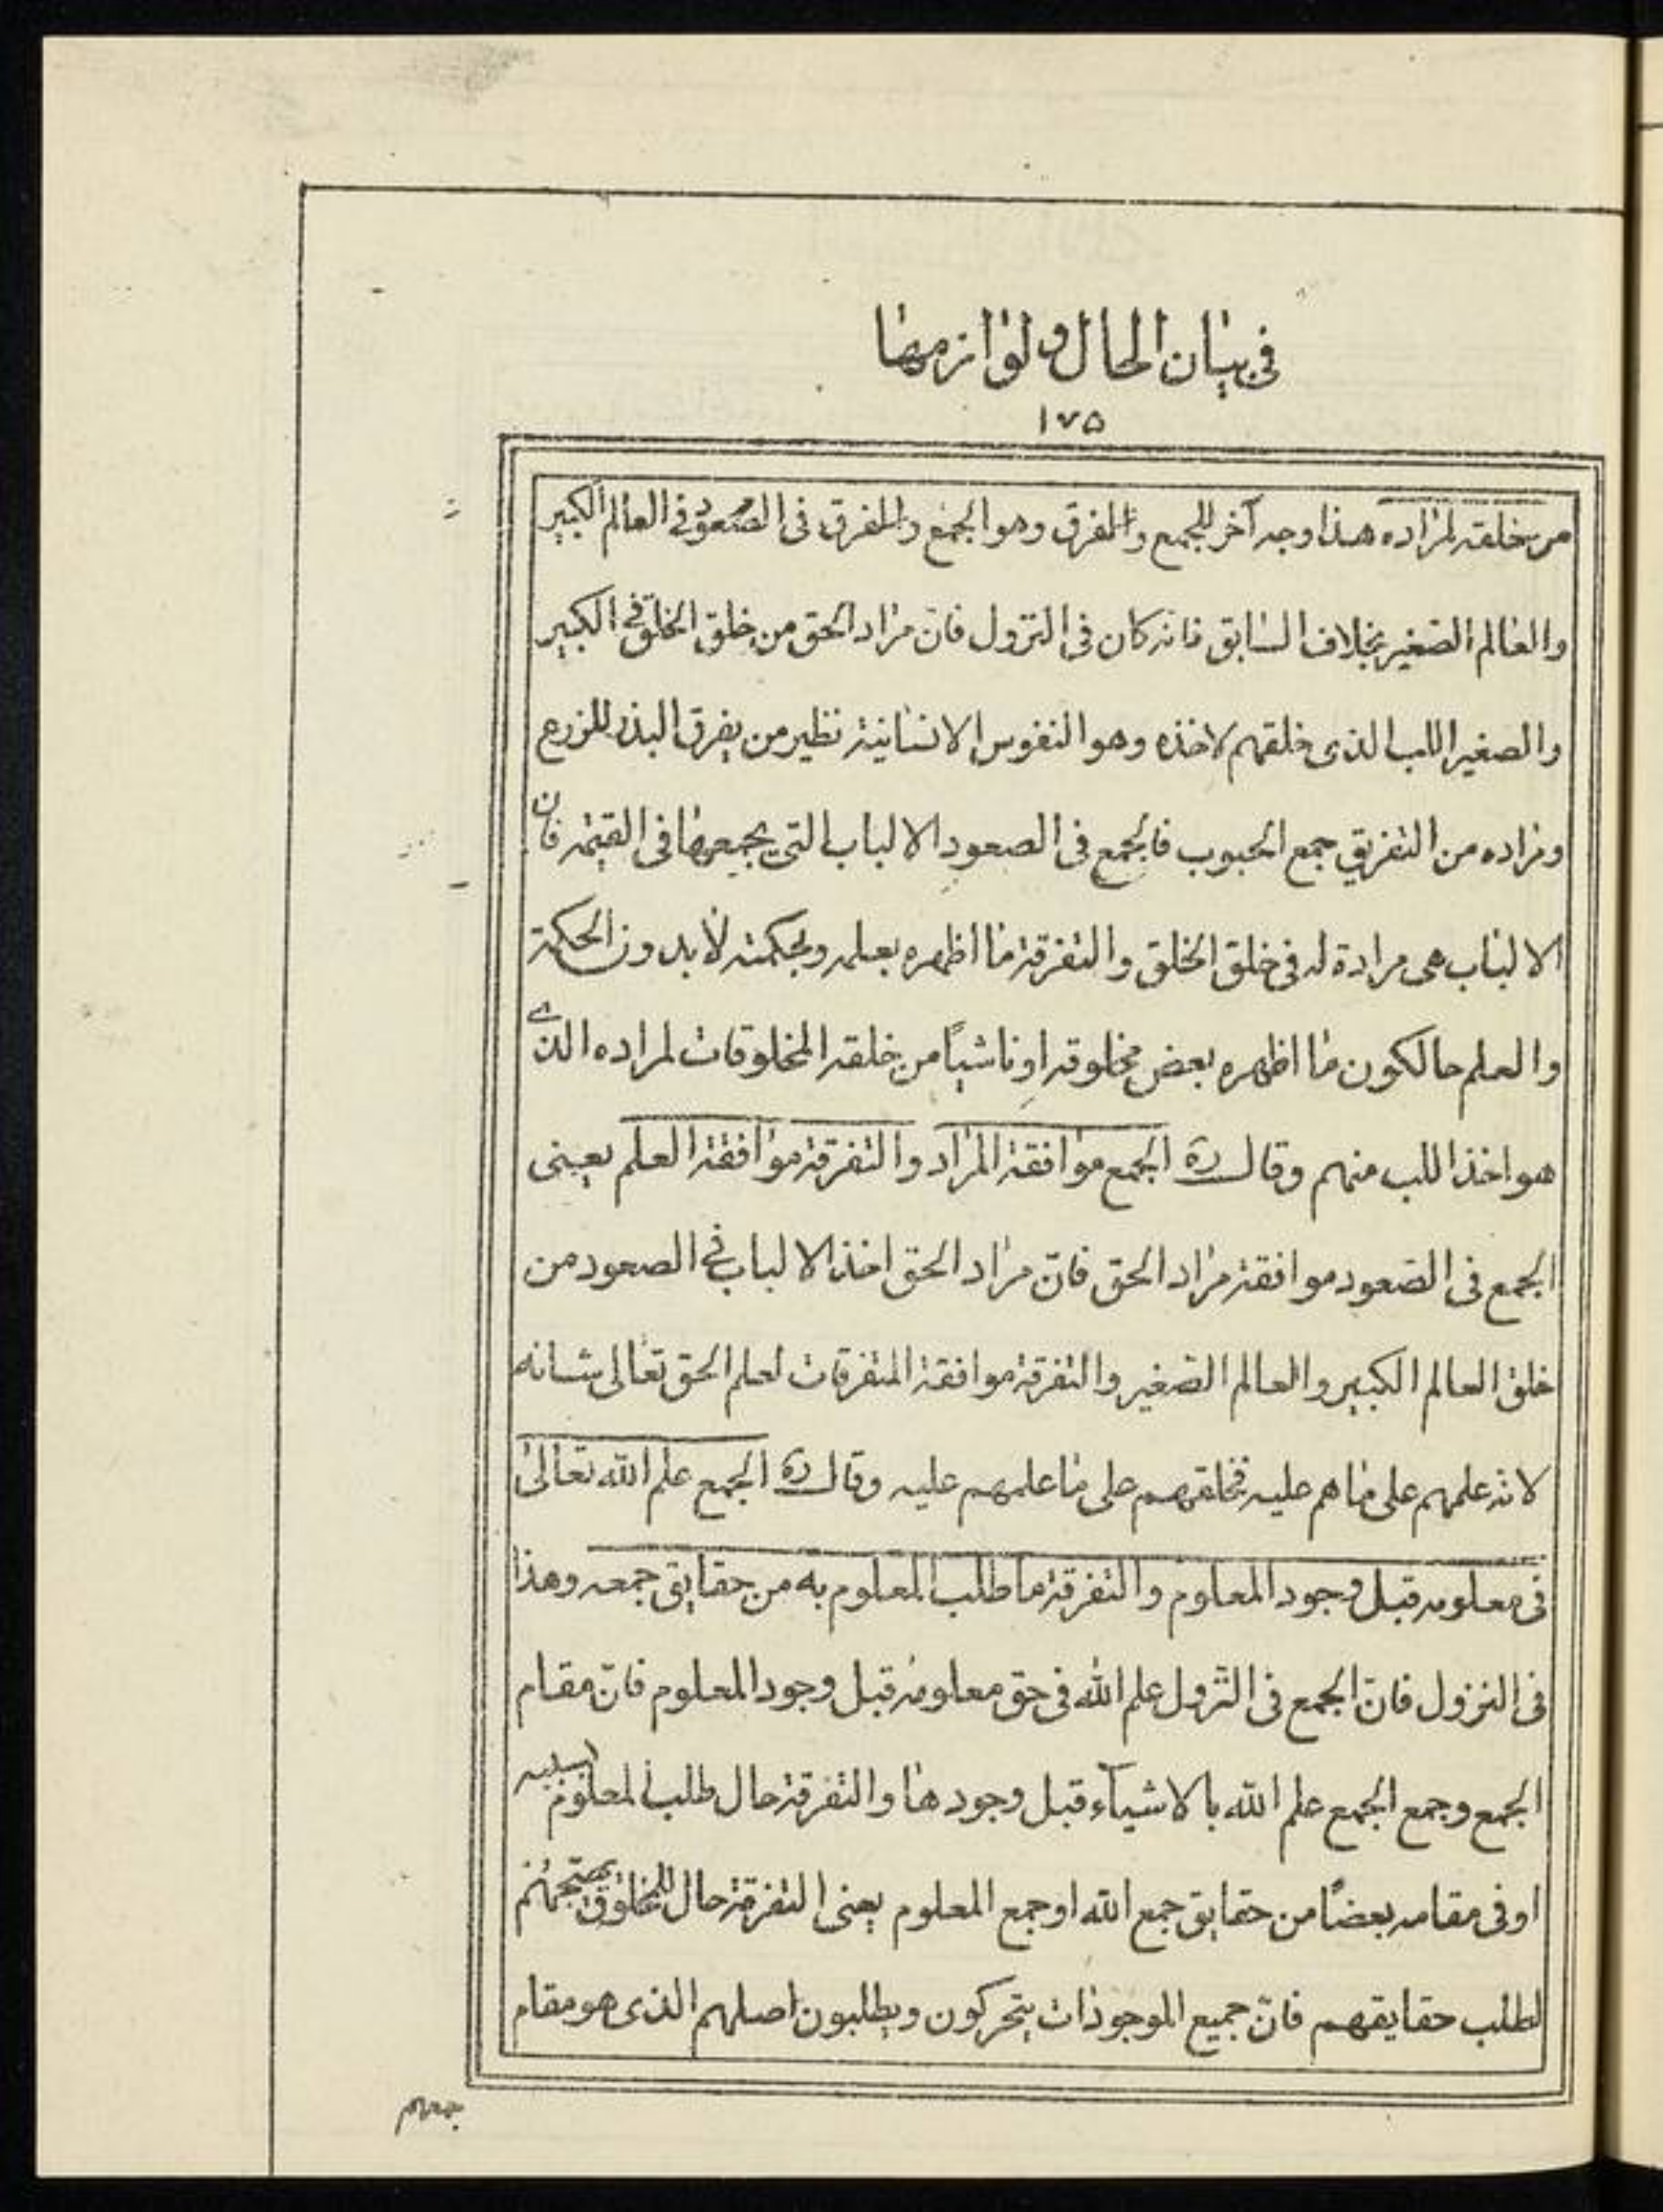 فى بيان الحال ولوازمها
١٧٥
من خلقته لمراده هذا وجه آخر للجمع والمفرق وهو الجمع والمفرق فى الصعود فى العالم الكبير
والعالم الصغير بخلاف السابق فانه كان فى النزول فان مراد الحق من خلق الخلق فى الكبير
والصغير اللب الذى خلقهم لاخذه وهو النفوس الانسانية نظير من يفرق البذر للزرع
ومراده من التفريق جمع الحبوب فالجمع فى الصعود الالباب التى يجمعها فى القيمة فان
الالباب هى مرادة له فى خلق الخلق والتفرقة ما اظهره بعلمه وبحكمته لا بدون الحكمة
والعلم حالكون ما اظهره بعض مخلوقه او ناشياً من خلقه المخلوقات لمراده الذى
هو اخذ اللب منهم وقال ره الجمع موافقة المراد والتفرقة موافقة العلم يعنى
الجمع فى الصعود موافقة مراد الحق فانّ مراد الحق اخذ الالباب فى الصعود من
خلق العالم الكبير والعالم الصغير والتفرقة موافقة المتفرقات لعلم الحق تعالى شانه
لانه علمهم على ما هم عليه فخلقهم على ما علمهم عليه وقال ره الجمع علم الله تعالى
فى معلومه قبل وجود المعلوم والتفرقة ما طلب المعلوم به من حقايق جمعه وهذا
فى النزول فانّ الجمع فى النزول علم الله فى حق معلومه قبل وجود المعلوم فانّ مقام
الجمع وجمع الجمع علم الله بالاشيآء قبل وجودها والتفرقة حال طلب المعلوم بسببه
او فى مقامه بعضاً من حقايق جمع الله او جمع المعلوم يعنى التفرقة حال للمخلوق
لطلب حقايقهم فانّ جميع الموجودات يتحركون ويطلبون اصلهم الذى هو مقام
جمعهم